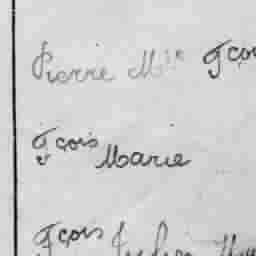 Pierre Mie Fçois
Fçois Marie
Fçois